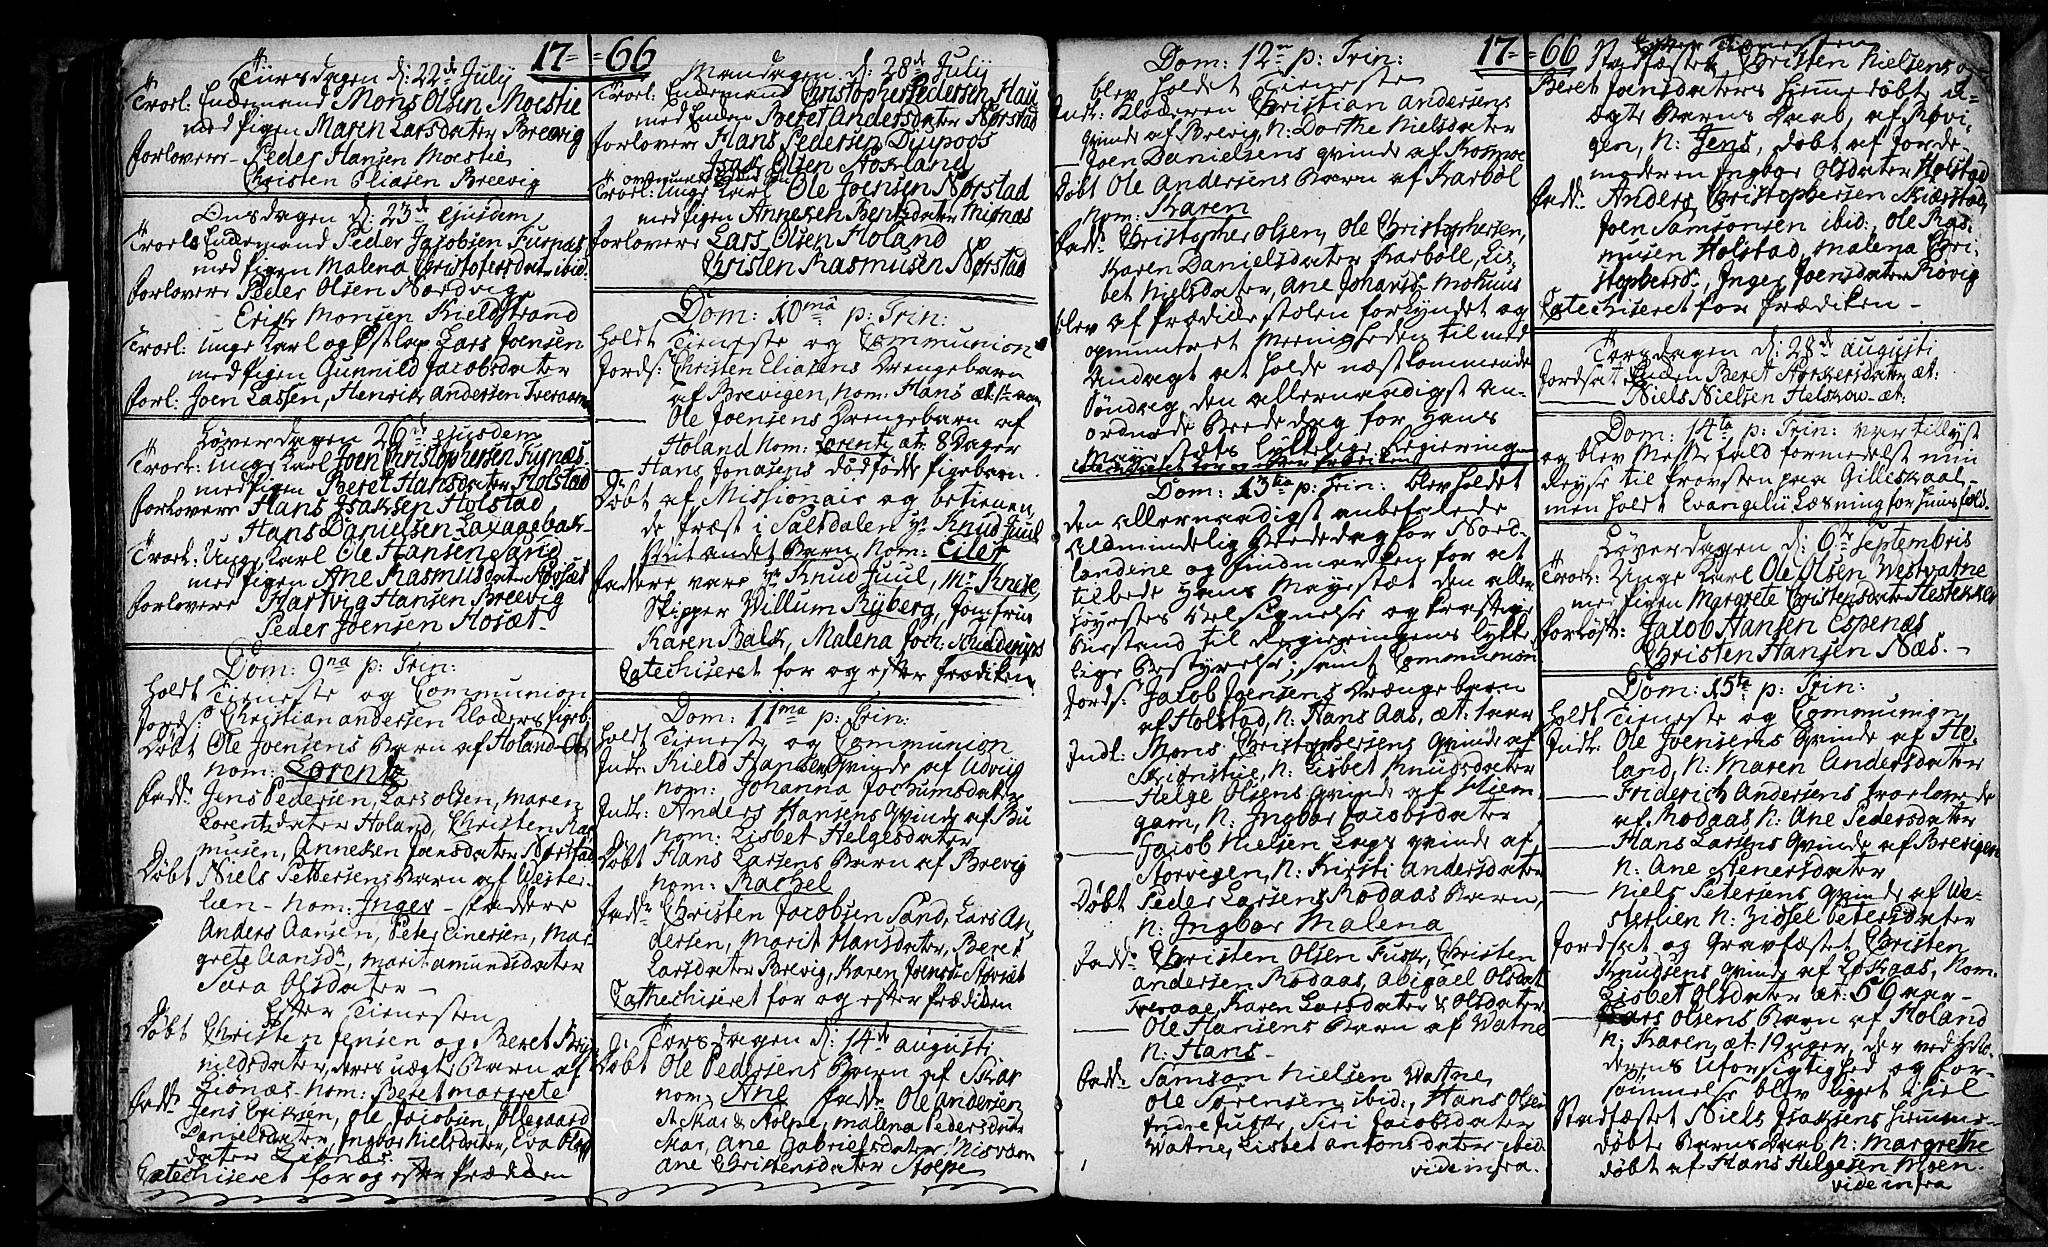 17 = = 66
Tiirsdagen d: 22de July
Troel: Enckemand Mons Olsen Moestie
med pigen Maren Larsdater Breevig
forlovere - Peder Hansen Moestie
Christen Eliasen Breevig
Onsdagen d: 23de ejusdem
Troel: Enckemand Peder Jacobsen Fusnæs
med pigen Malena Christophersdat: ibid:
forlovere Peder Olsen Nordvig
Erich Monsen Kieldstrand
Troel: unge Karl og Østlap Lars Joensen
med pigen Gunnild Jacobsdater
forl: Joen Lassen, Henrich Andersen Tveraaen
Løverdagen 26de ejusdem
Troel: unge Karl Joen Christophersen Fusnæs
med pigen Beret Hansdater Holstad
forlovere Hans Isaksen Holstad
Hans Danielsen Laxagebak
Troel: Ung Karl Ole Hansen Sand
med pigen Ane Rasmusdater
forlovere Hartvig Hansen Breevig
Peder Joensen Hosæt
Dom: 9na p: Trin:
holdt Tieneste og Communion
Jords: Christian Andersen Kloders pigeb:
Døbt Ole Joensens Barn af Holand
nom: Lorentz
fadd: Jens Pedersen, Lars Olsen, Maren
Lorentzdater Holand, Christen Ras
musen, Anneken Joensdater Nørstad
Døbt Niels Pettersens Barn af Wester-
lien - nom: Inger - faddere
Anders Aansen, Peter Einersen, Mar-
grete Aansdr, Marit Amundsdater
Sara Olsdater -
Efter Tienesten
Døbt Christen Jensen og Beret Bry-
nildsdater, deres uægte Barn af
Lionæs - nom: Beret Margrete
fadd: Jens Eriksen, Ole Jacobsen, Ollegaard
Danielsdater, Ingbor Nielsdater, Eva Ols
dater Lionæs
Catechiseret for og efter Prædiken
Mandagen d: 28de July
Troel: Enckemand Christopher Pedersen Hau
med Enken Beret Andersdater Nørstad
forlovere Hans Pedersen Diupoos
Isach Olsen Stokland
Troel: unge Karl Ole Joensen Nørstad
med pigen Anneken Bentsdater Misnæs
forlovere Lars Olsen Holand
Christen Rasmusen Nørstad
Dom: 10ma p: Trin:
holdt Tieneste og Communion
Jords: Christen Eliasens Drengebarn
af Brevigen, nom: Hans æt: 1/2 aar
Ole Joensens Drengebarn af
Holand nom: Lorentz æt: 8 Dager
Hans Jonasens dødfødde pigebarn
Døbt af Missionair og betienen-
de Præst i Saltdalen Hr Knud Juul
Mit andet Barn, nom: Eiler
faddere vare Hr Knud Juul, Mr Knese,
Skipper Willum Ryberg, Jomfrue
Karen Balk, Malena Joch: Schielderups
Catechiseret for og efter Prædiken
Dom: 11ma p: Trin:
holdt Tieneste og Communion
Indl: Kield Hansens Qvinde af Udvig
nom: Johanna Jochumsdater
Indl: Anders Hansens Qvinde af Bu
nom: Lisbet Helgesdater
Døbt Hans Larsens Barn af Brevig
nom: Rachel
fadd: Christen Jacobsen Sand, Lars An-
dersen, Marit Hansdater, Beret
Larsdater Brevig, Karen Joensd:
Cathechiseret for og efter Prædiken
Torsdagen d: 14de Augusti
Døbt Ole Pedersens Barn af Skar
nom: Ane fadd: Ole Andersen
Skar & Stolpe, Malena Pedersdat:
Skar, Ane Gabrielsdater Nisvæen
Ane Christensdater Stolpe
17 = = 66
Dom: 12te p: Trin:
blev holdet Tieneste
Indl: Kloderen Christian Andersens
Qvinde af Brevig, N: Dorthe Nielsdater
Joen Danielsens Qvinde af Kosmoe
Døbt Ole Andersens Barn af Karbøl
Nom: Karen
fadd: Christopher Olsen, Ole Christophersen,
Karen Danielsdater Karbøll, Lis-
bet Nielsdater, Ane Johansd: Mohuus
blev af Prædickestolen forkyndet og
opmuntret Meenigheden til med
Andagt at holde næstkommende
Søndag den allernaadigst an-
ordnede Bededag for Hans
Mayestæts Lykkelige Regiering
Catechiseret for og efter Prædiken
Dom: 13tia p: Trin: blev holdet
den allernaadigst anbefalede
Aldmindelig Bededag for Nord-
landene og Findmarken for at
tilbede Hans Mayestæt den aller
høyestes Velsignelse og kraftige
Bistand til Regieringens lykke
lige Bestyrelse; samt Communion
Jords: Jacob Joensens Drænge barn
af Holstad, N: Hans Aas, æt: 1 aar
Indl: Mons Christophersens Qvinde af
Skieristue, N: Lisbet Knudsdater
Helge Olsens Qvinde af Hiem-
gam, N: Ingbor Jacobsdater
Jacob Nielsen Laps Qvinde af
Storvigen, N: Kirsti Andersdater
Døbt Peder Larsens Rodaas Barn,
N: Ingbor Malena
fadd: Christen Olsen Fuske, Christen
Andersen Rodaas, Abigael Olsdat
Tveraae, Karen Larsdater & Olsdater
Ole Hansens Barn af Watne
N: Hans -
fadd: Samson Nielsen Watne,
Ole Sørensen ibid:, Hans Olsen
Indre Fuske, Siri Jacobsdater
Watne, Lisbet Antonsdater ibid.
vide infra.
Efter Tienesten
Stadfæstet Christen Nielsens og
Beret Jensdaters hiemmedøbte u-
ægte Barns Daab, af Røvi-
gen, N: Jens, døbt af Jorde-
moderen Ingbor Olsdater Holstad
fadd: Anders Christophersen Skierstad,
Joen Samsonsen ibid:, Ole Ras-
musen Holstad, Malena Chri-
stophersd:, Inger Joensdater Røvig
Catechiseret for Prædiken -
Torsdagen d: 28de Augusti
Jordsat Enken Beret Torkersdater æt:
Niels Nielsen Helskow æt:
Dom: 14ta p: Trin: var tillyst
og blev Messefald formedelst min
Reyse til Provsten paa Gilleskaal,
men holdt Evangelii Læsning for Huusfolk.
Løverdagen d: 6te Septembris
Troel: Unge Karl Ole Olsen Westvatne
med pigen Margrete Christensdater Hestekken
forløft: Jacob Hansen Espenæs
Christen Hansen Næs. -
Dom: 15ta p: Trin:
holdt Tieneste og Communion
Indl: Ole Joensens Qvinde af Ho-
land, N: Maren Andersdater
Friderich Andersens trolovede
af Rodaas N: Ane Pedersdater
Hans Larsens Qvinde af Brevigen
N: Ane Stenersdater
Niels Petersens Qvinde af We-
sterlien N: Zidsel Petersdater
Jordsat og Gravfæstet Christen
Knudsens Qvinde af Løkaas, Nom:
Lisbet Olsdater æt: 56 aar -
Lars Olsens Barn af Holand
N: Karen, æt: 19 uger, der ved Mo-
derens uforsigtighed og for-
sømmelse blev ligget ihiel
Stadfæstet Niels Isaksens hiemme-
døbte Barns Daab N: Margrethe
døbt af Hans Helgesen Moen.
vide infra